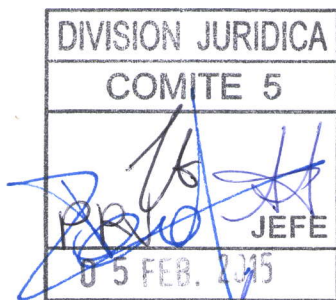 DIVISION JURIDICA
COMITE 5
JEFE
05 FEB. 2015